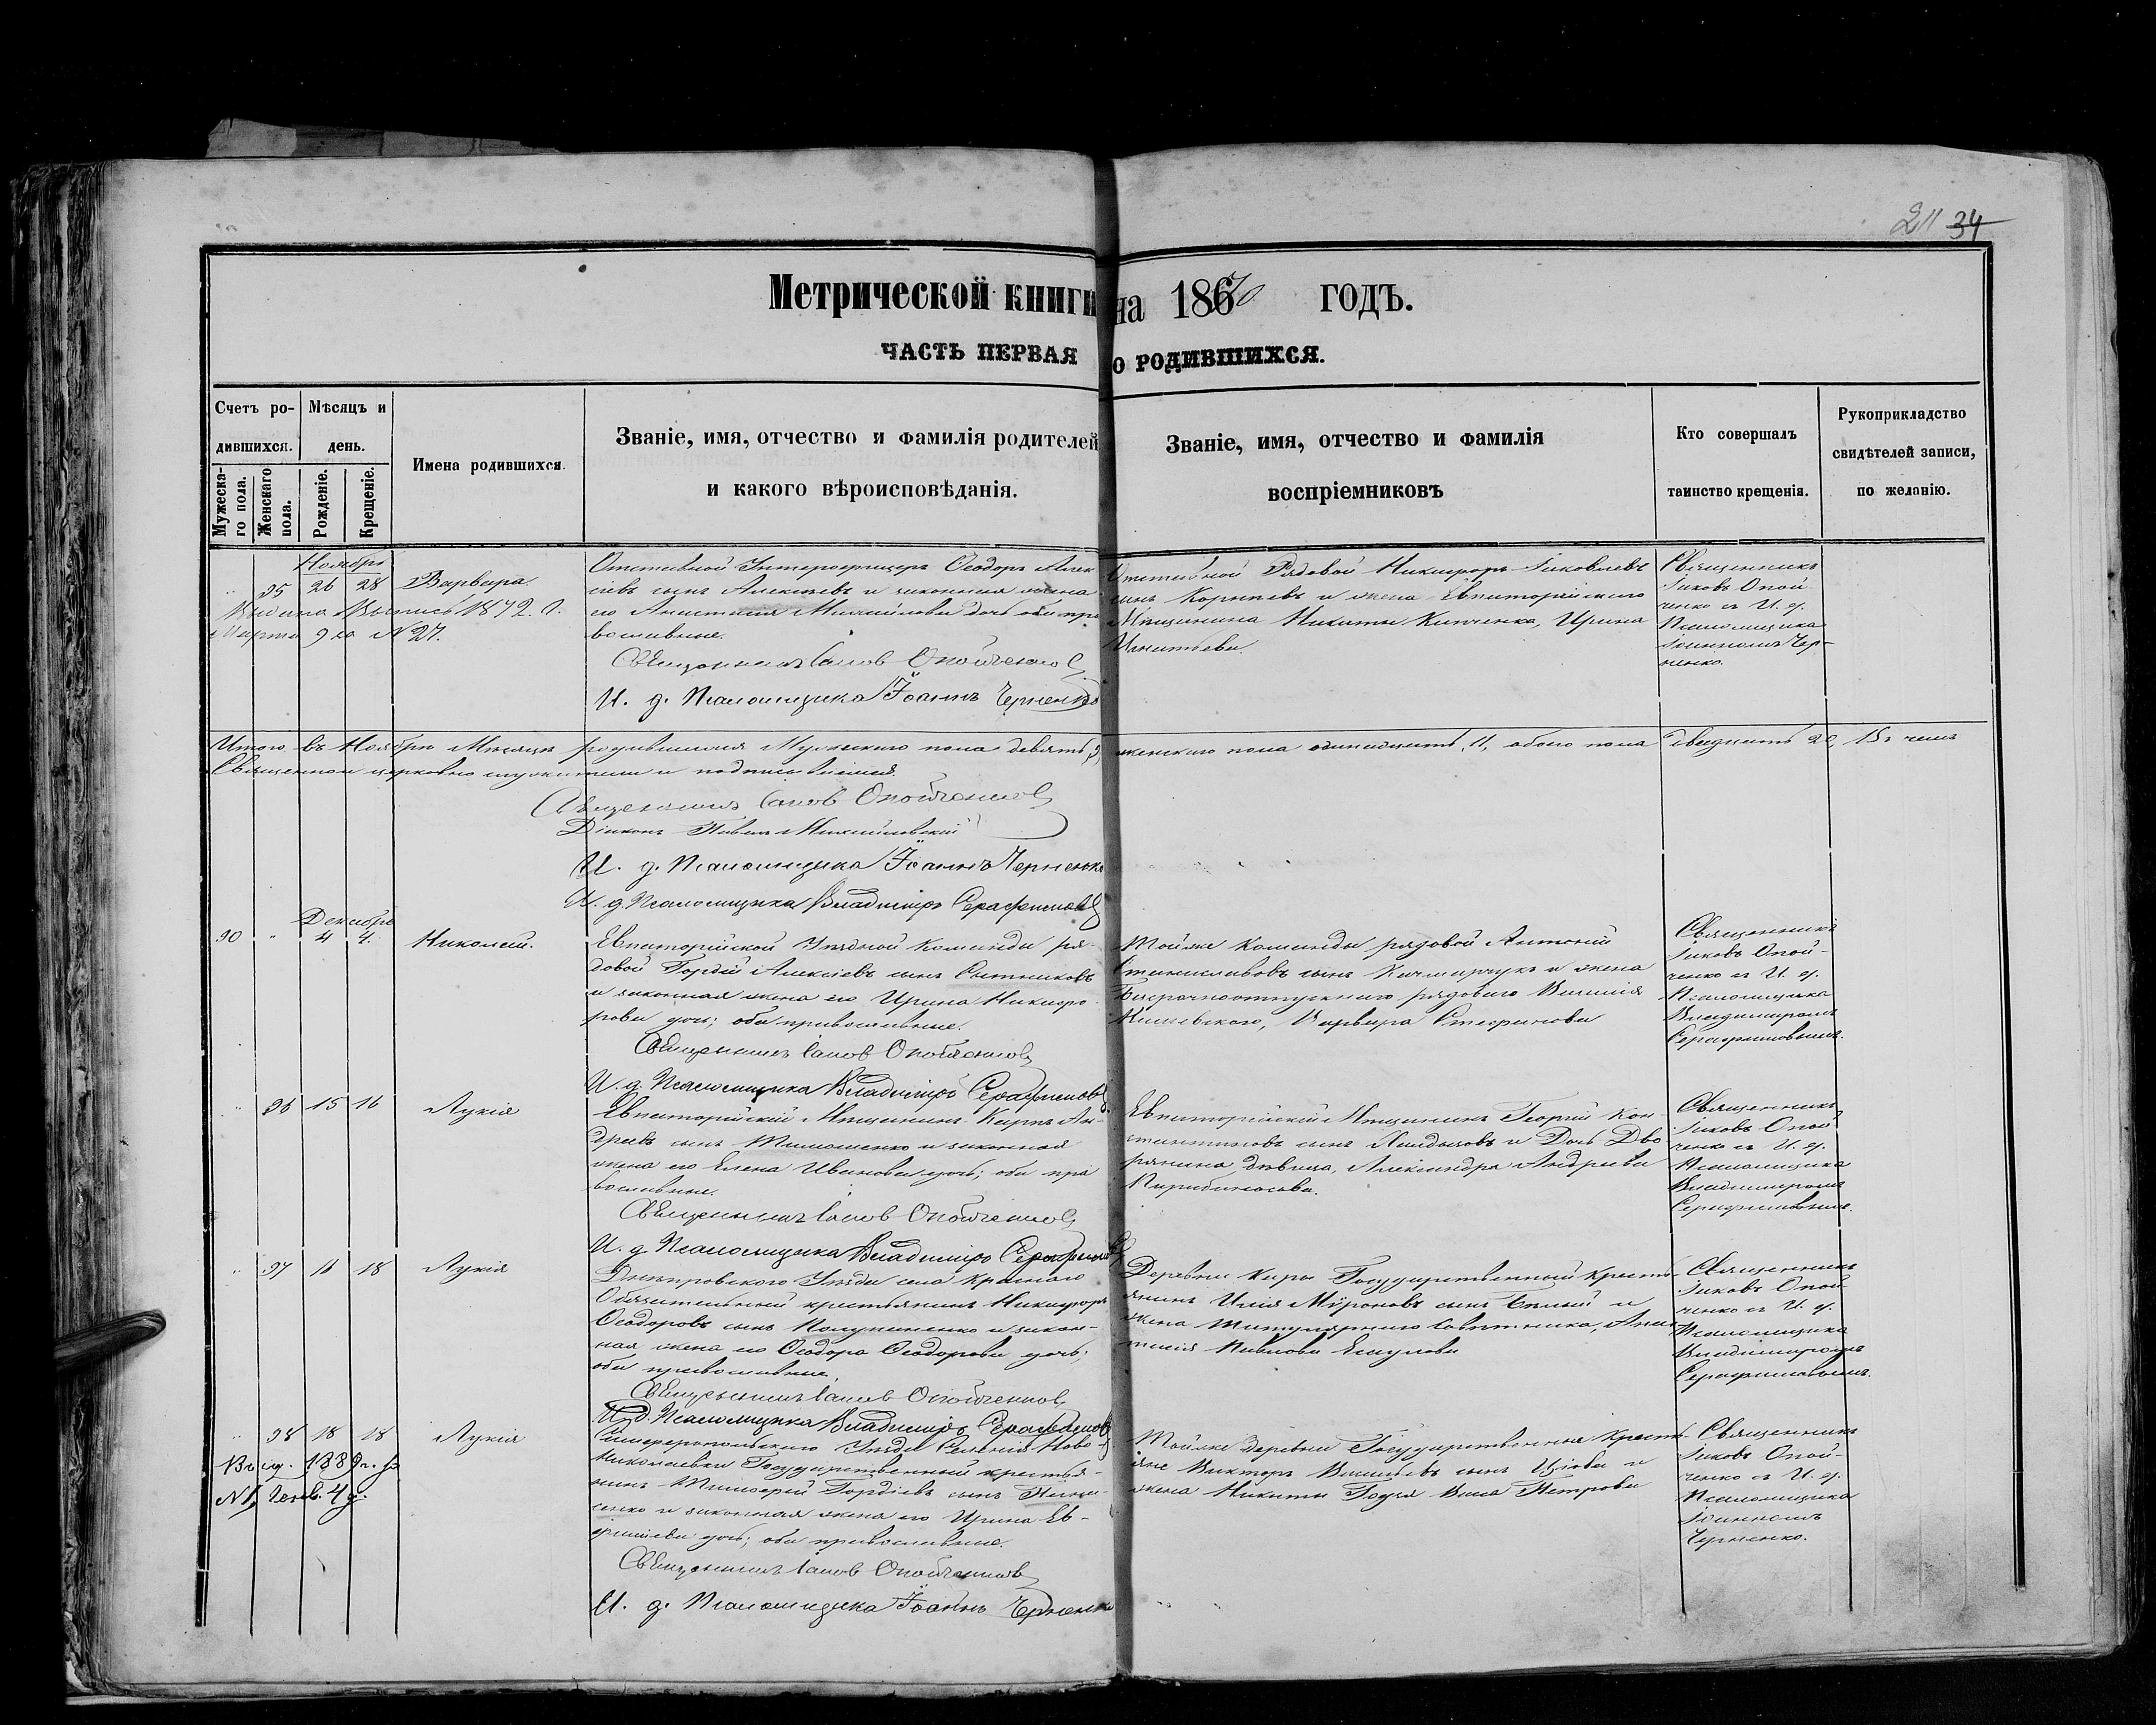 211 34
Метрической книги на 1870 годъ.
ЧАСТЬ ПЕРВАЯ о РОДИВШИХСЯ.
Счетъ ро-
дившихся.
Мужеска-
го пола.
Женскаго
пола.
Мѣсяцъ и
день.
Рожденіе.
Крещеніе.
Имена родившихся.
Званіе, имя, отчество и фамилія родителей
и какого вѣроисповѣданія.
Званіе, имя, отчество и фамилія
воспріемниковъ
Кто совершалъ
таинство крещенія.
Рукоприкладство
свидѣтелей записи,
по желанію.
Ноябрь
" 95 26 28 Варвара.
Выдана Выпись 1872 г.
Марта 9 го N 27.
Отставной Унтерофицеръ Ѳеодоръ Алек
сіевъ сынъ Алексѣевъ и законная жена
его Анастасія Михайлова дочь оба пра
вославные.
Священникъ Іаковъ Опойченков
И. д. Псаломщика Іоаннъ Черненко
Отставной Рядовой Никифоръ Іаковлевъ
сынъ Корнѣевъ и жена Евпаторійскаго
Мѣщанина Никиты Кипченка, Ирина
Игнатьева.
Священникъ
Іаковъ Опой
ченко съ И. д.
Псаломщика
Іоанномъ Чер-
ненко.
Итого въ Ноябрѣ Мѣсяцѣ родившихся Мужескаго пола девять, 9, женскаго пола одинадцать, 11, обоего пола двадцать 20, Въ чемъ
Священно и церковно служители и подписываемся.
Священникъ Іаковъ Опойченков
Діаконъ Павелъ Михайловскій
И. д. Псаломщика Іоаннъ Черненко
И. д. Псаломщика Владиміръ Серафимовъ
Декабрь
90 " 4 4. Николай.
Евпаторійской Уѣздной Команды ря-
довой Гордій Алексіевъ сынъ Сытниковъ
и законная жена его Ирина Никифо-
рова дочь; оба православные.
Священникъ Іаковъ Опойченков
И. д. Псаломщика Владиміръ Серафимовъ
Той же команды рядовой Антоній
Станиславовъ сынъ Качмарчукъ и жена
Безсрочноотпускнаго рядоваго Василія
Варвара Стефанова
Священникъ
Іаковъ Опой-
ченко съ И. д.
Псаломщика
Владиміромъ
Серафимовымъ.
" 96 15 16 Лукія
Евпаторійскій Мѣщанинъ Карпъ Ан-
дреевъ сынъ Тимошенко и законная
жена его Елена Иванова дочь; оба пра
вославные.
Священникъ Іаковъ Опойченков
И. д. Псаломщика Владиміръ Серафимовъ
Евпаторійскій Мѣщанинъ Георгій Кон-
стантиновъ сынъ и Дочь Дво
рянина, дѣвица, Александра Андреева
Священникъ
Іаковъ Опой
ченко съ И. д.
Псаломщика
Владиміромъ
Серафимовымъ.
" 97 11 18 Лукія
Днѣпровскаго Уѣзда села Краснаго
Обязательный крестьянинъ Никифоръ
Ѳеодоровъ сынъ и закон-
ная жена его Ѳеодора Ѳеодорова дочь;
оба православные.
Священникъ Іаковъ Опойченков
И. д. Псаломщика Владиміръ Серафимовъ
Деревни Киры Государственный кресть-
янинъ Илія Мѵроновъ сынъ Бѣлый и
жена Титулярнаго Совѣтника, Анас-
тасія Павлова
Священникъ
Іаковъ Опой
ченко съ И. д.
Псаломщика
Владиміромъ
Серафимовымъ.
" 98 18 18 Лукія
Выд. 1889 г. за
N 1, Генв. 4 д.
Симферопольскаго Уѣзда Селенія Ново-
николаевки Государственный крестья-
нинъ Тимофей Гордіевъ сынъ
и законная жена его Ирина Ев-
фиміева дочь; оба православные.
Священникъ Іаковъ Опойченков
И. д. Псаломщика Іоаннъ Черненко
Той же деревни Государственные кресть-
яне Викторъ Васильевъ сынъ и
жена Никиты Васса Петрова
Священникъ
Іаковъ Опой-
ченко съ И. д.
Псаломщика
Іоанномъ
Черненко.